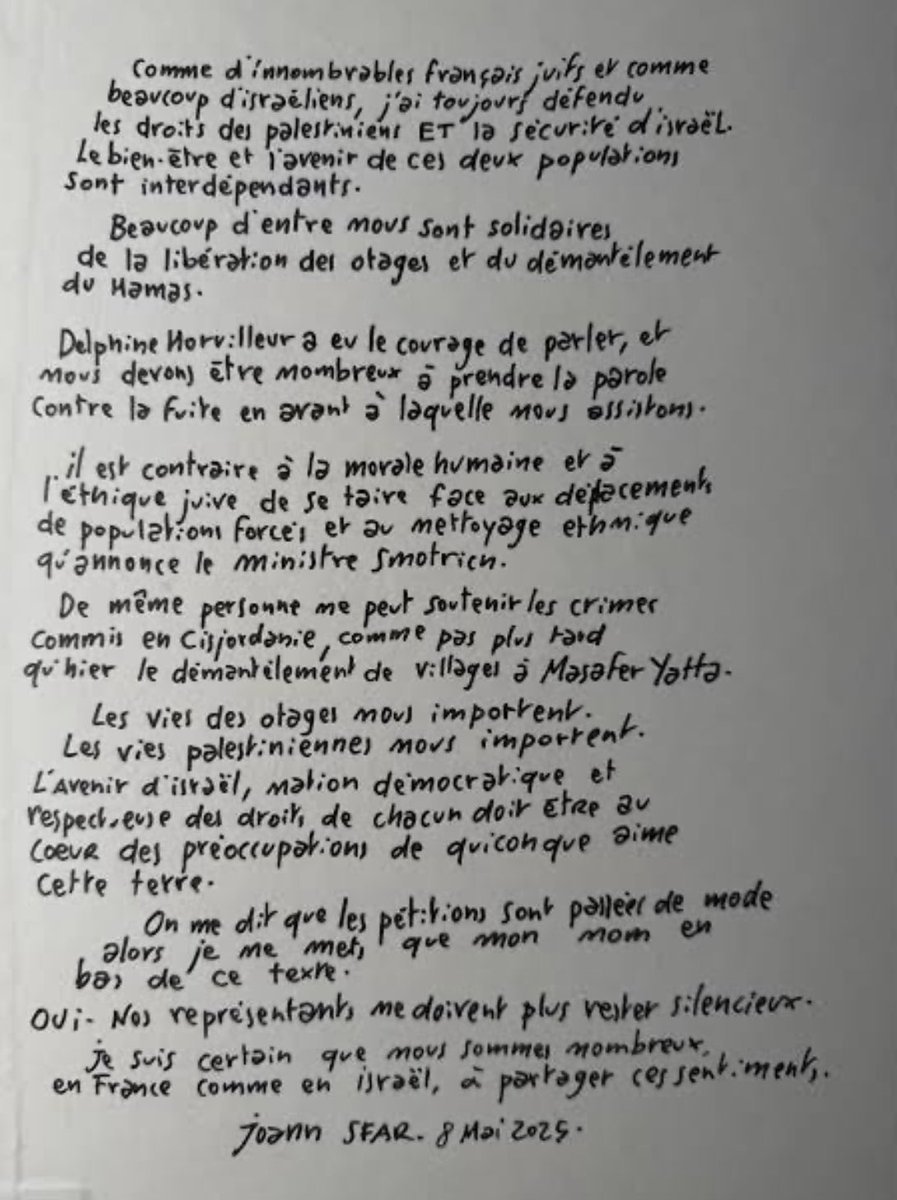 Comme d'innombrables français juifs et comme
beaucoup d'israéliens, j'ai toujours défendu
les droits des palestiniens ET la sécurité d'israël.
Le bien-être et l'avenir de ces deux populations
sont interdépendants.
Beaucoup d'entre nous sont solidaires
de la libération des otages et du démantèlement
du Hamas.
Delphine Horvilleur a eu le courage de parler, et
nous devons être nombreux à prendre la parole
contre la fuite en avant à laquelle nous assistons.
il est contraire à la morale humaine et à
l'éthique juive de se taire face aux déplacements
de populations forcés et au nettoyage ethnique
qu'annonce le ministre Smotrich.
De même personne ne peut soutenir les crimes
commis en Cisjordanie, comme pas plus tard
qu'hier le démantèlement de villages à Masafer Yatta.
Les vies des otages nous importent.
Les vies palestiniennes nous importent.
L'Avenir d'israël, nation démocratique et
respectueuse des droits de chacun doit être au
coeur des préoccupations de quiconque aime
cette terre.
On me dit que les pétitions sont passées de mode
alors je ne mets que mon nom en
bas de ce texte.
OUI - Nos représentants ne doivent plus rester silencieux.
je suis certain que nous sommes nombreux,
en France comme en israël, à partager ces sentiments.
joann SFAR. 8 Mai 2025.